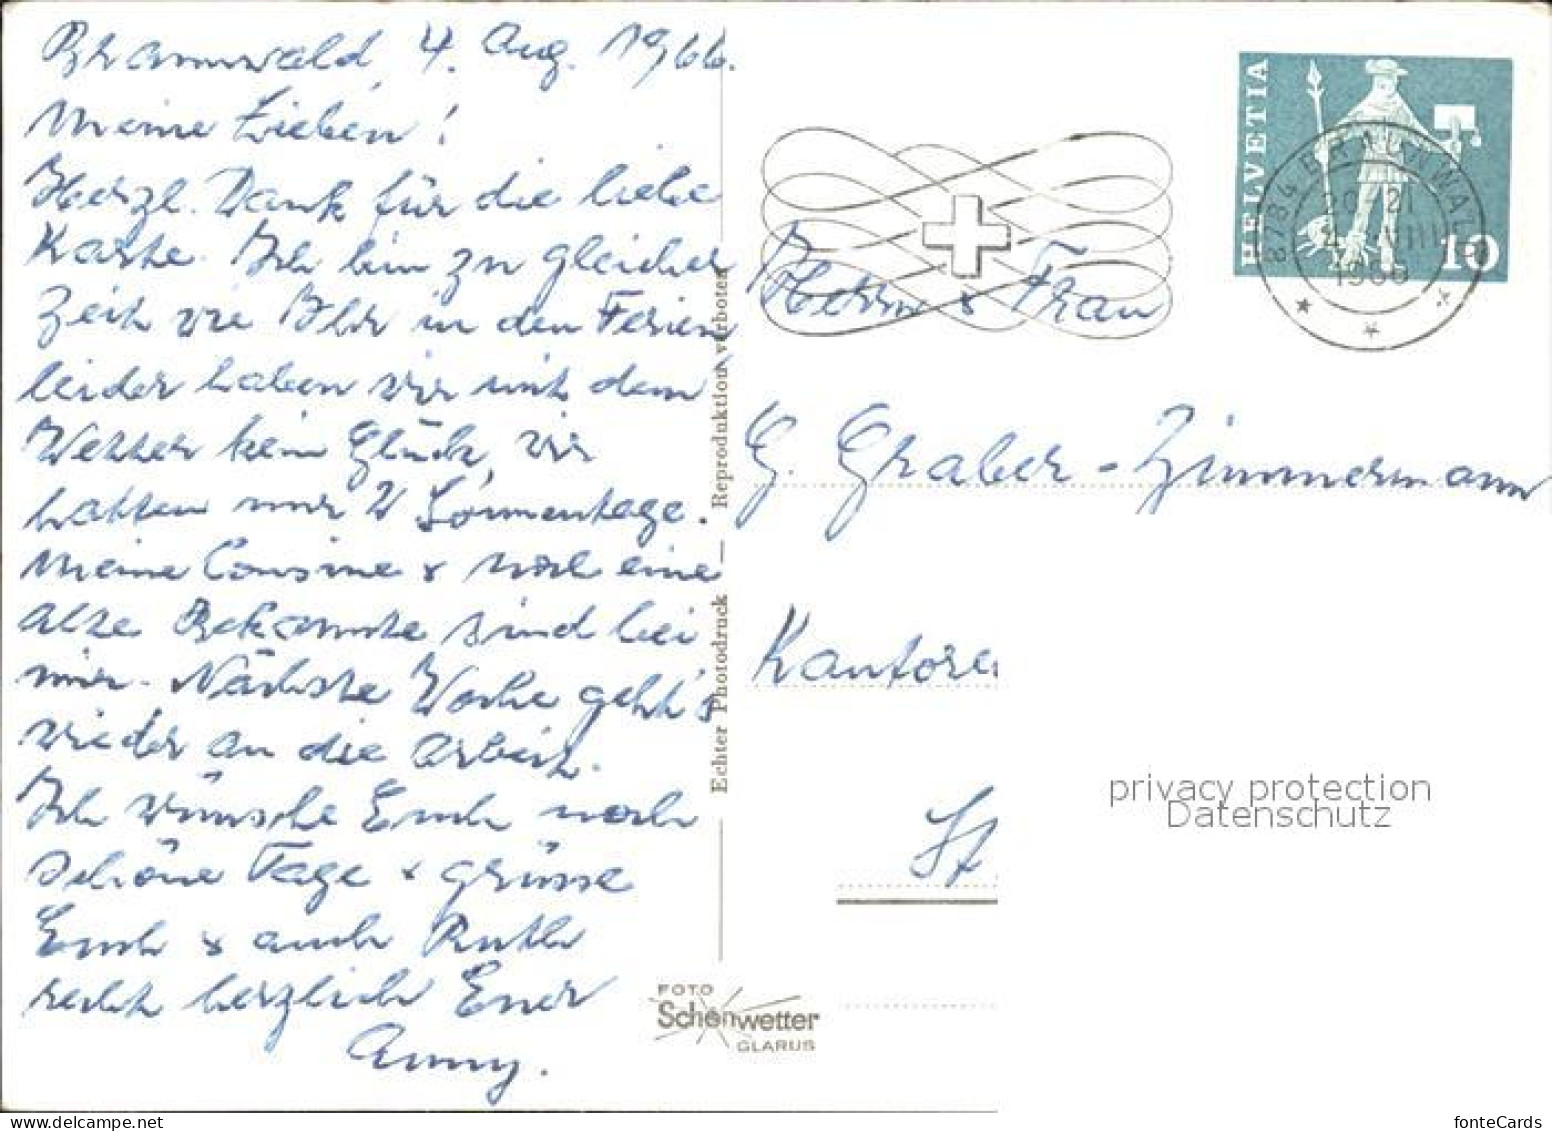 Braunwald, 4. Aug. 1966.
Meine Lieben!
Herzl. Dank für die liebe
Karte. Ich bin zu gleicher
Zeit wie Ihr in den Ferien
leider haben wir mit dem
Wetter kein Glück, wir
hatten nur 2 Sonnentage.
Meine Cousine & noch eine
alte Bekannte sind bei
mir. Nächste Woche geht's
wieder an die Arbeit.
Ich wünsche Euch noch
schöne Tage & grüsse
Euch & auch Ruth
recht herzlich Euer
Anny.
Echter Photodruck — Reproduktion verboten
FOTO
Schönwetter
GLARUS
HELVETIA
10
8784 BRAUNWALD
20-21
4. VIII
1966
Herrn & Frau
G. Graber-Zimmermann
Kantore
St
privacy protection
Datenschutz
fonteCards